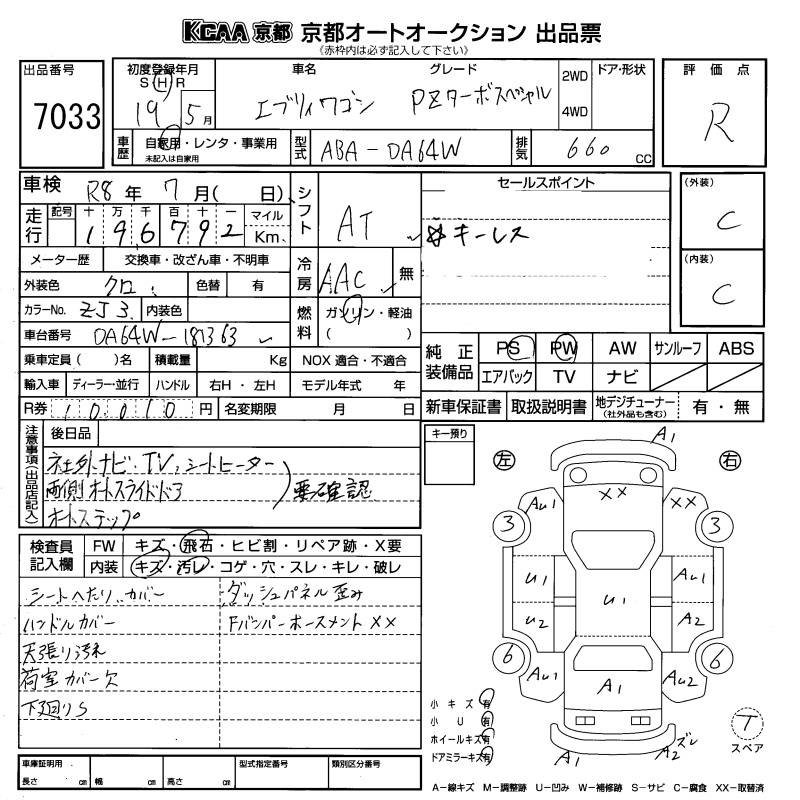 KCAA 京都 京都オートオークション 出品票
《赤枠内は必ず記入して下さい》
出品番号
7033
初度登録年月
S H
19 5月
車名
エブリィワゴン
グレード
PZターボスペシャル
2WD
4WD
ドア・形状
評価点
R
車歴
自家用・レンタ・事業用
未記入は自家用
型式
ABA-DA64W
排気
660 CC
車検 R8年 7月( 日)
シフト
AT
セールスポイント
キーレス
(外装)
C
(内装)
C
走行
記号 十 万 千 百 十 一 マイル
196792 Km
メーター歴 交換車・改ざん車・不明車
冷房
AAC 無
外装色 クロ 色替 有
カラーNo. ZJ3 内装色
燃料
ガソリン・軽油
( )
車台番号 DA64W-187363
乗車定員( )名 積載量 Kg NOX 適合・不適合
輸入車 ディーラー・並行 ハンドル 右H・左H モデル年式 年
R券 10010円 名変期限 月 日
純正装備品
PS PW AW サンルーフ ABS
エアバック TV ナビ
新車保証書 取扱説明書 地デジチューナー(社外品も含む) 有・無
注意事項(出品店記入)
後日品
社外ナビ・TV、シートヒーター
両側オートスライドドア
オートステップ
要確認
キー預り
検査員記入欄
FW キズ・飛石・ヒビ割・リペア跡・X要
内装 キズ・汚レ・コゲ・穴・スレ・キレ・破レ
シートへたり、カバー ダッシュパネル歪み
ハンドルカバー Fバンパーホースメント XX
天張り汚れ
荷室カバー欠
下廻りS
左 右
A1
XX XX
AU1
3 3
U1 U1 AU1
U2 A2
6 6
AU1 A1 AU2
A1 A2 ズレ
小キズ 有
小U 有
ホイールキズ 有
ドアミラーキズ 有
T
スペア
車庫証明用 型式指定番号 類別区分番号
長さ cm 幅 cm 高さ cm
A-線キズ M-調整跡 U-凹み W-補修跡 S-サビ C-腐食 XX-取替済